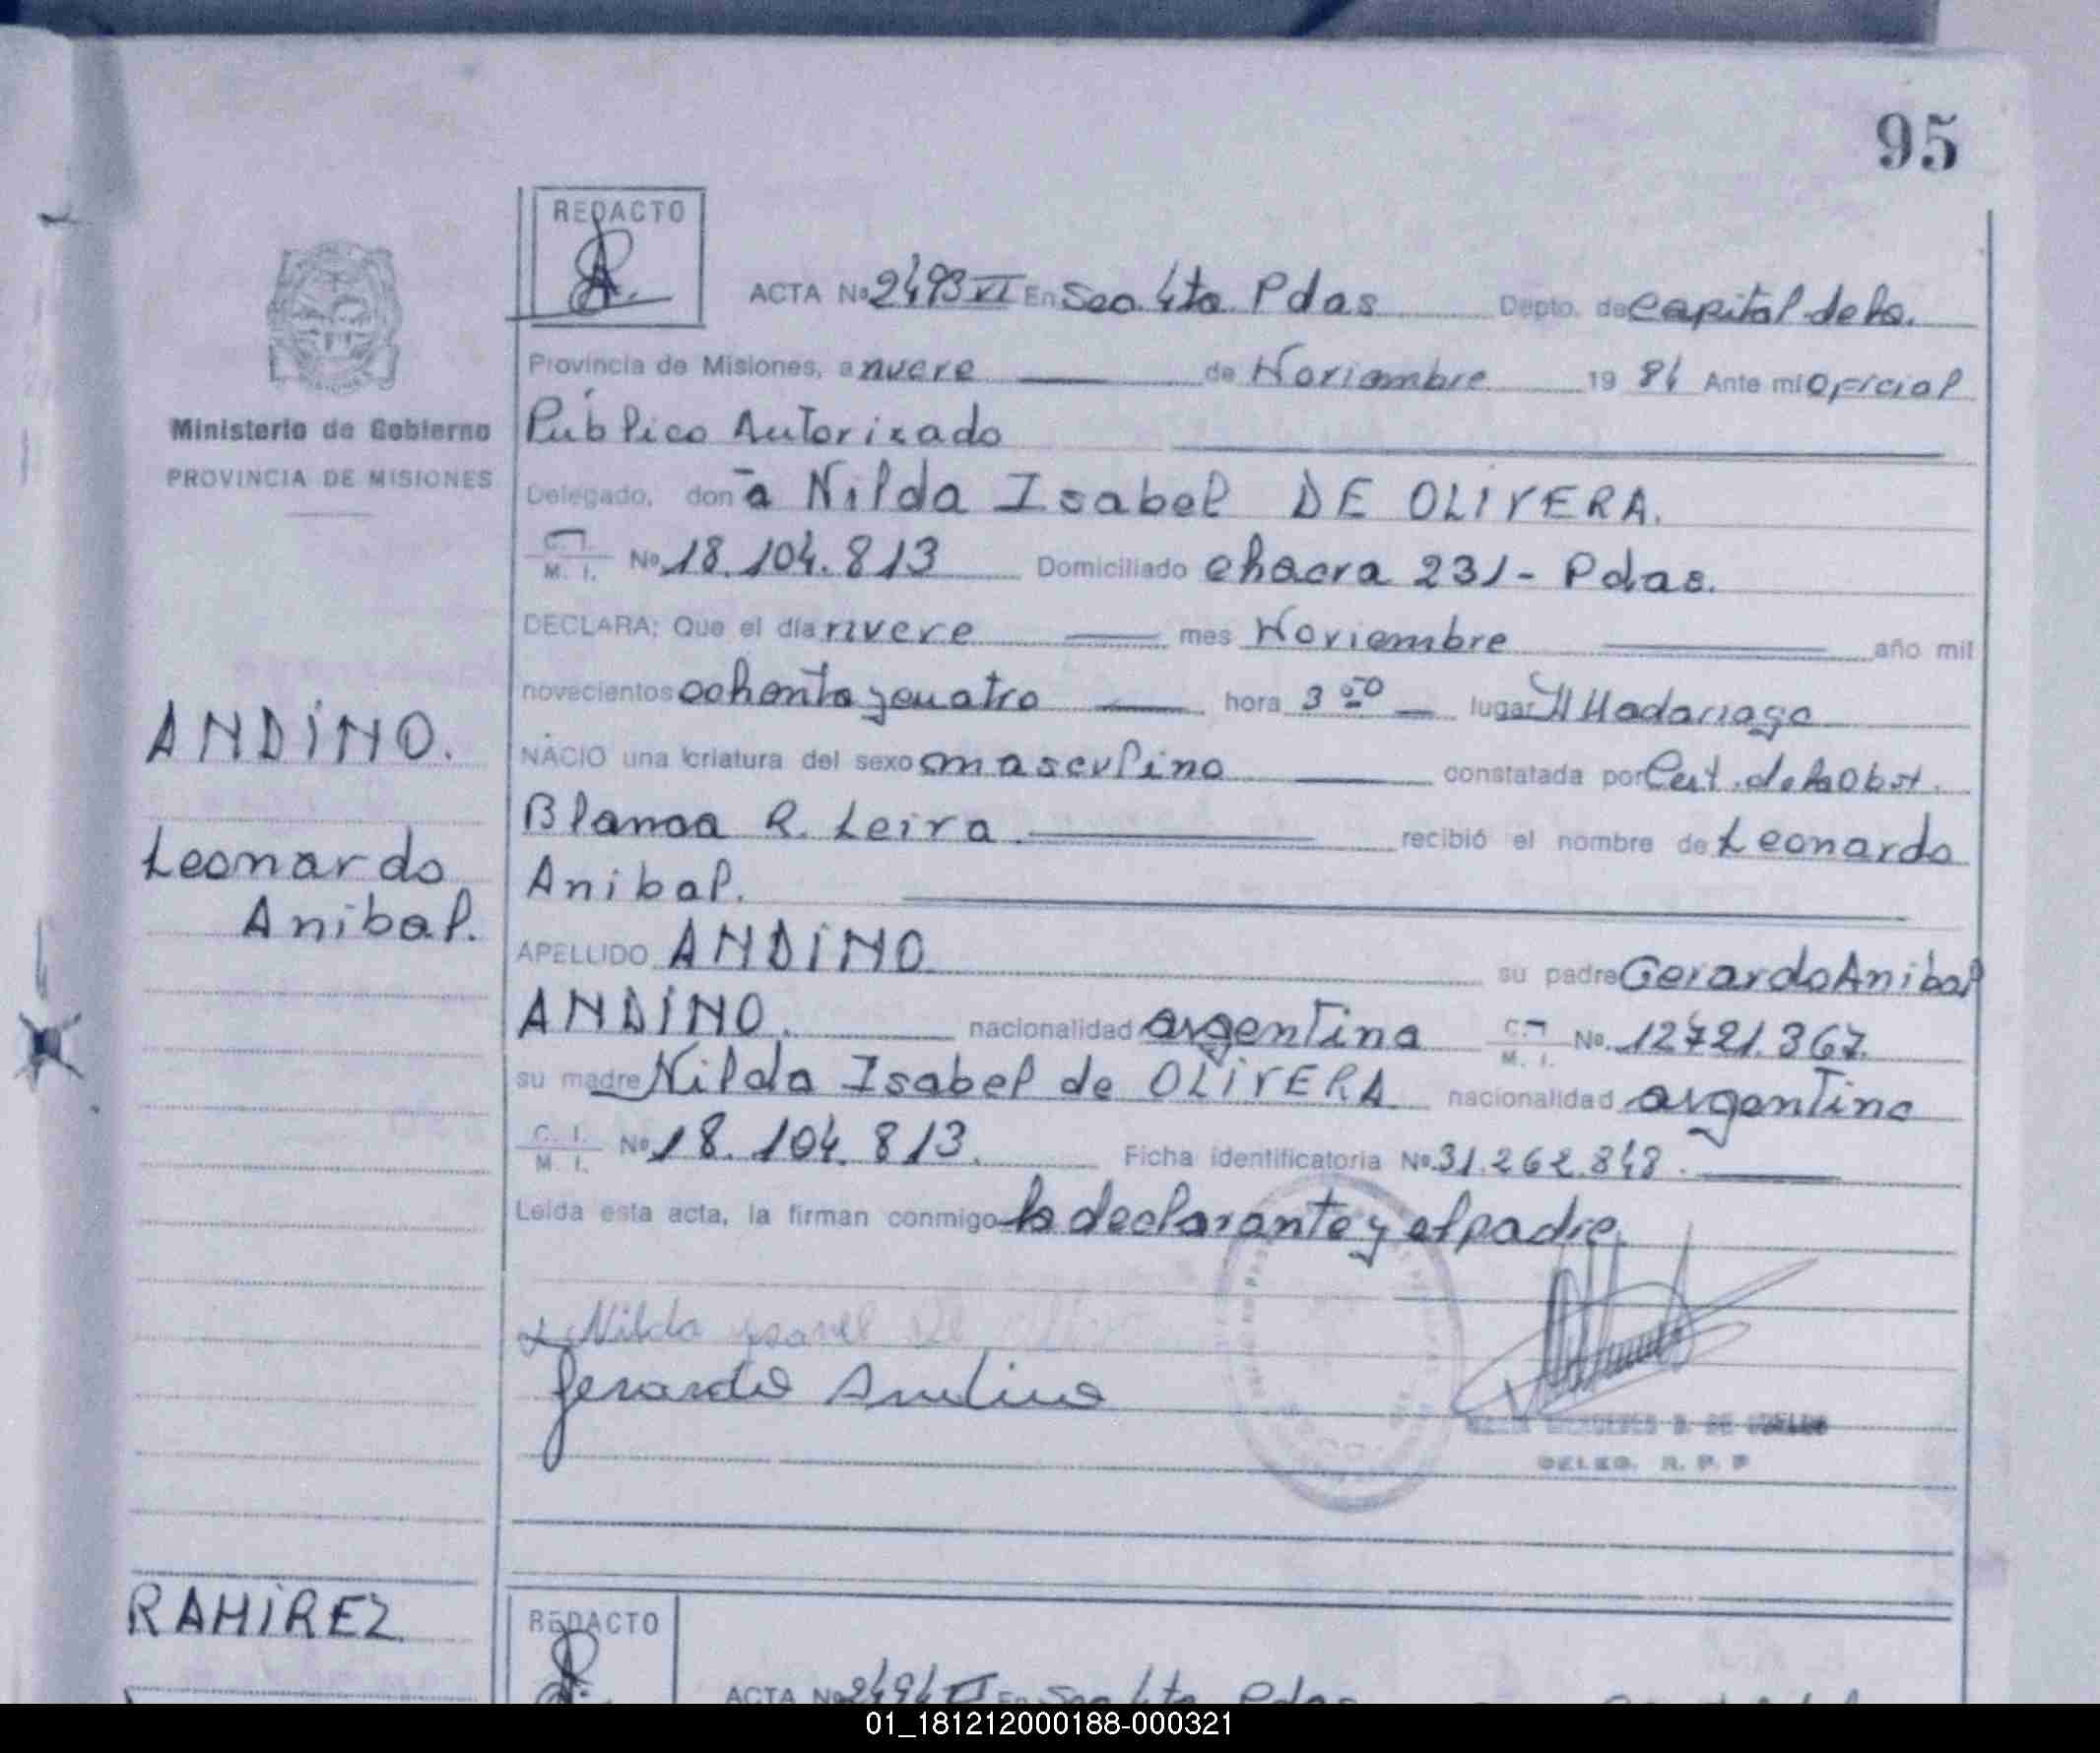 95
REDACTO
ACTA Nº 2493 VI En Sec. 4ta Pdas Depto. de Capital de la.
Provincia de Misiones, a nueve de Noviembre 19 84 Ante mi Oficial
Ministerio de Gobierno
Público Autorizado
PROVINCIA DE MISIONES
Delegado, don a Nilda Isabel DE OLIVERA.
C. I. M. I. Nº 18.104.813 Domiciliado chacra 231 - Pdas.
DECLARA: Que el día nueve mes Noviembre año mil
novecientos ochenta y cuatro hora 3 50 lugar H Madariaga
ANDINO.
NACIO una criatura del sexo masculino constatada por Cert. de la Obst.
Blanca R. Leira recibió el nombre de Leonardo
Leonardo
Anibal.
Anibal.
APELLIDO ANDINO su padre Gerardo Anibal
ANDINO. nacionalidad argentina C. I. M. I. Nº. 12721.367.
su madre Nilda Isabel de OLIVERA nacionalidad argentina
C. I. M. I. Nº 18.104.813. Ficha identificatoria Nº 31.262.848.
Leída esta acta, la firman conmigo la declarante y el padre.
Nilda ysavel De
Gerardo Andino
DELEG. R. P. P
RAMIREZ
REDACTO
ACTA Nº 2494 VI En Sec 4ta Pdas
01_181212000188-000321